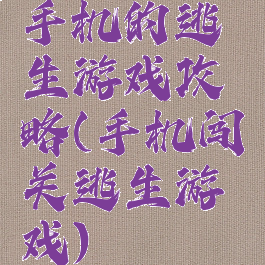 手机的逃
生游戏攻
略(手机闯
关逃生游
戏)